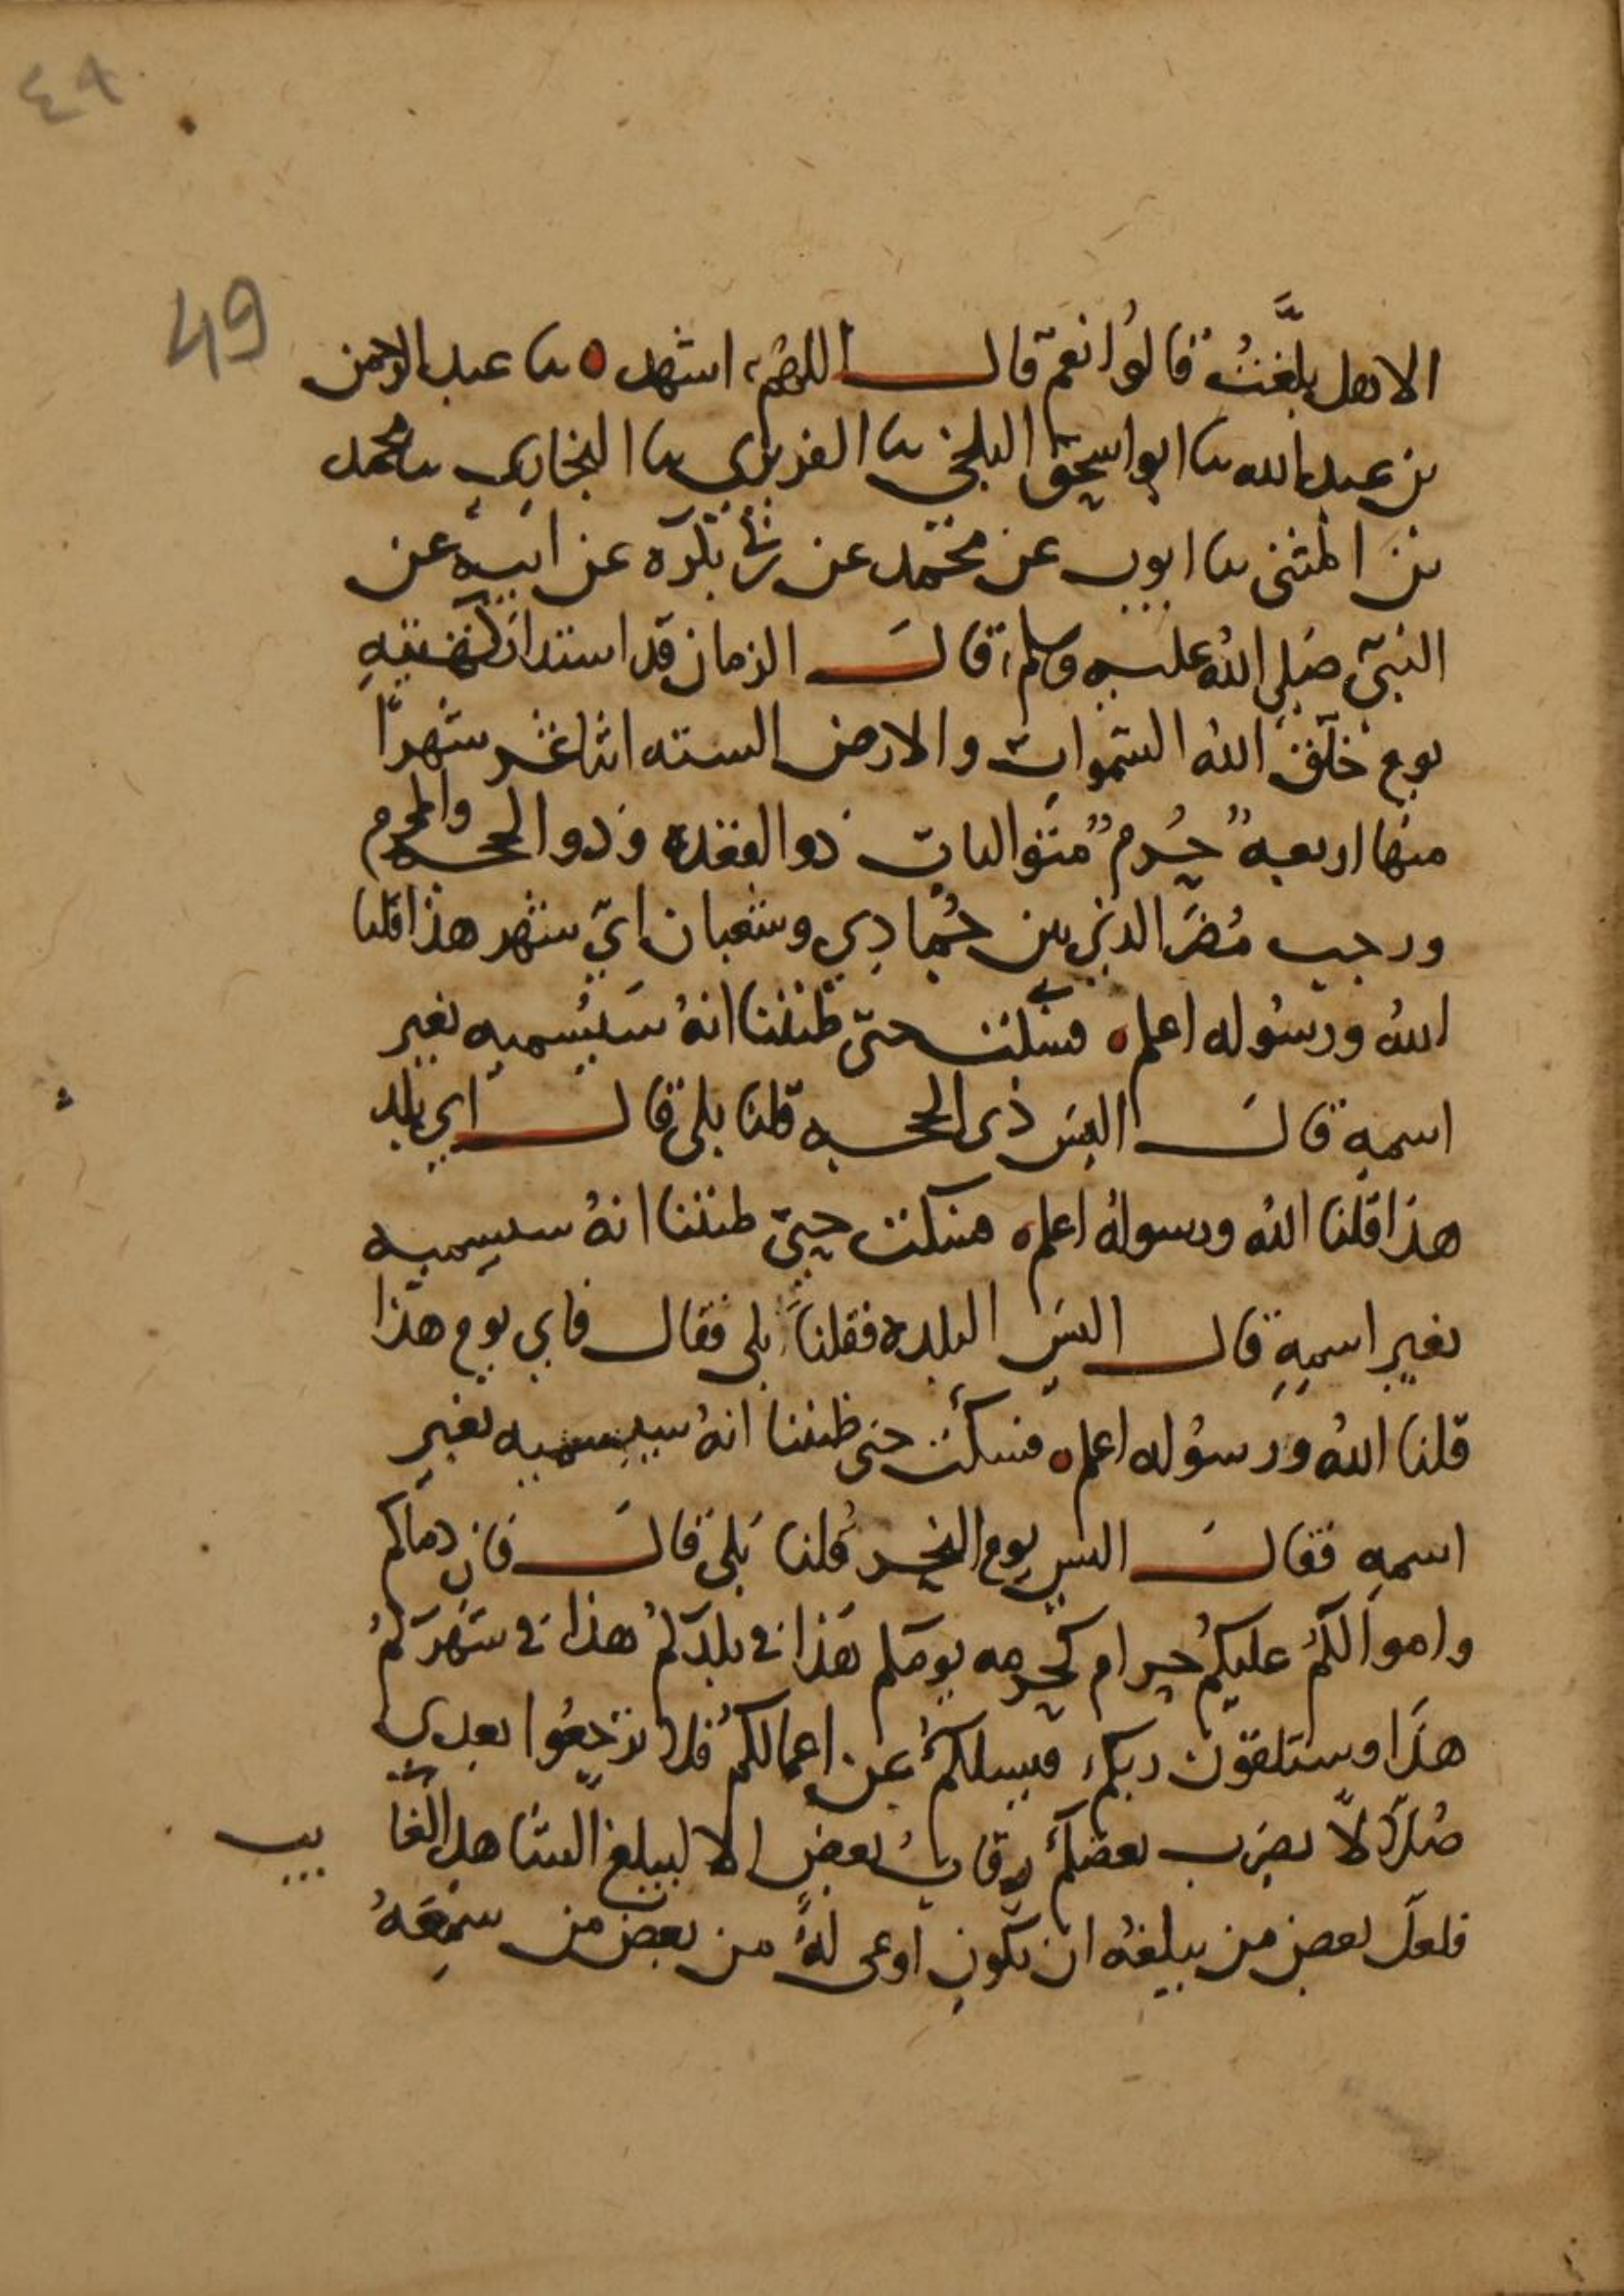 ٤٩
49
الا هل بلَّغتُ قالوُا نعم قال اللهم اشهد ٥ نا عبد الرحمن
بن عبد الله نا ابو اسحق البلخي نا الفربري نا البخاري نا محمد
بن المثنى نا ايوب عن محمد عن ابي بكره عن ابيه عن
النبي صلى الله عليه وسلم قال الزمان قد استدار كهيئتهِ
يوم خلق الله السموات والارض السنه اثنا عشر شهرًا
منها اربعهٌ حُرمٌ متواليات ذو القعده وذو الحجه والمحرم
ورجب مُضَر الذي بين جُمادي وشعبان ايّ شهر هذا قلنا
اللهُ ورسُوله اعلم ٥ فسكت حتى ظننا انهُ سَيُسميه بغير
اسمهِ قالَ اليسَ ذى الحجه قلنا بلى قال اي بلد
هذا قلنا الله ورسولهُ اعلم ٥ فسكت حتى ظننا انهُ سيسميه
بغير اسمِهِ قال اليسَ البلده فقلنا بلى فقال فاي يوم هذا
قلنا اللهُ ورسُوله اعلم ٥ فسكت حتى ظننا انهُ سيسميه بغير
اسمهِ فقالَ اليس يوم النحر قُلنا بَلى قالَ فان دماكم
واموالكُم عليكُم حرام كحرمه يومكم هَذا في بلدكمُ هذا في شهركمُ
هذَا وستلقون ربكم فيسلكُم عن اعمالكُم فلا ترجعُوا بعدي
ضُلالا يضرب بعضكُم رقابُ بعضٍ الا ليبلغ الشاهد الغا يب
فلعل بعض من يبلغهُ ان يكون اوعى لهُ من بعض من سمِعَهُ